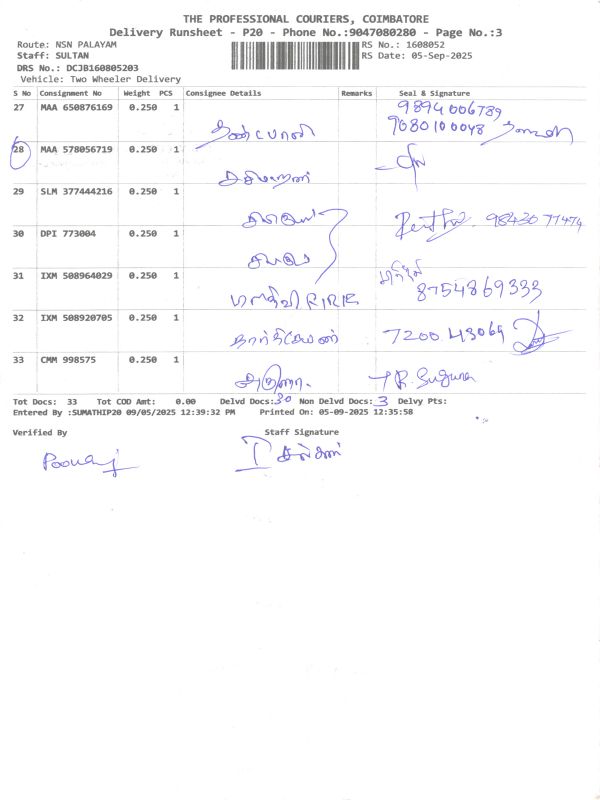 THE PROFESSIONAL COURIERS, COIMBATORE
Delivery Runsheet - P20 - Phone No.:9047080280 - Page No.:3
Route: NSN PALAYAM RS No.: 1608052
Staff: SULTAN RS Date: 05-Sep-2025
DRS No.: DCJB160805203
Vehicle: Two Wheeler Delivery
S No Consignment No Weight PCS Consignee Details Remarks Seal & Signature
27 MAA 650876169 0.250 1 9894006789
9080100048
28 MAA 578056719 0.250 1
29 SLM 377444216 0.250 1 98430 77474
30 DPI 773004 0.250 1
31 IXM 508964029 0.250 1 8754869333
32 IXM 508920705 0.250 1 கார்த்திகேயன் 7200 43069
33 CMM 998575 0.250 1 அருணா. T.R. Suguna
Tot Docs: 33 Tot COD Amt: 0.00 Delvd Docs: 30 Non Delvd Docs: 3 Delvy Pts:
Entered By :SUMATHIP20 09/05/2025 12:39:32 PM Printed On: 05-09-2025 12:35:58
Verified By Staff Signature